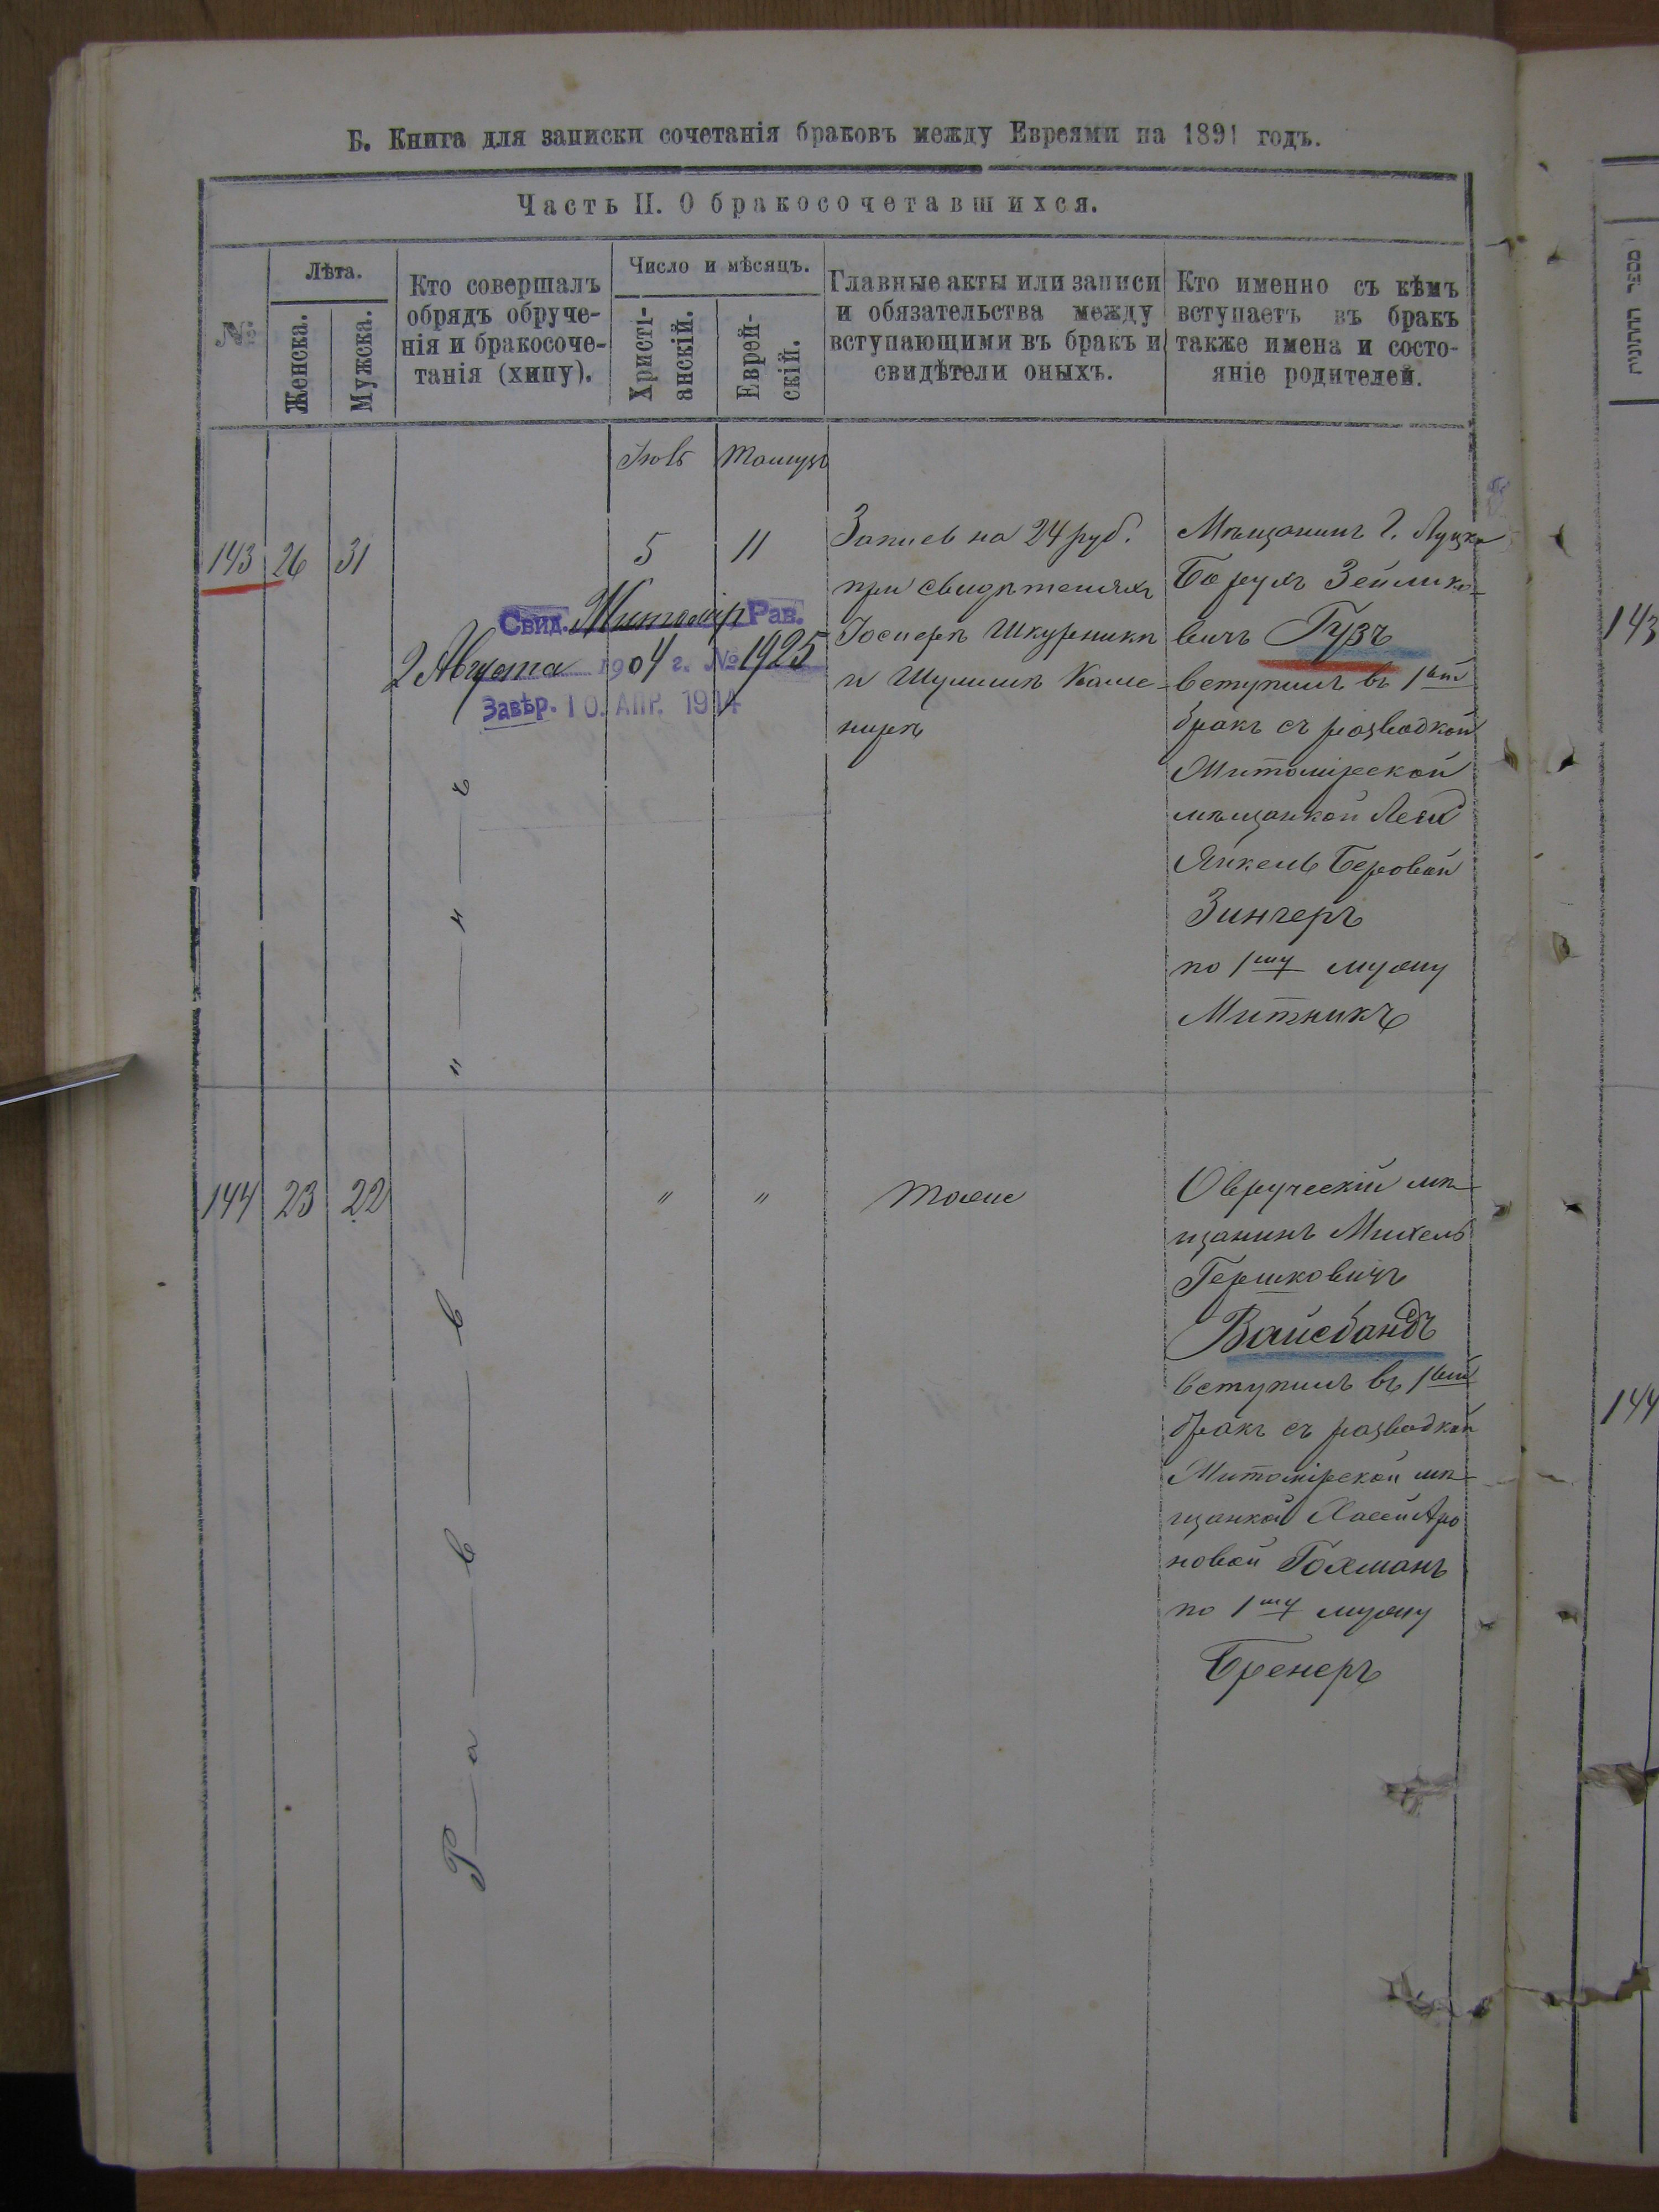 Б. Книга для записки сочетанія браковъ между Евреями на 1891 годъ.
Часть II. О бракосочетавшихся.
№
Лѣта.
Женска.
Мужска.
Кто совершалъ
обрядъ обруче-
нія и бракосоче-
танія (хипу).
Число и мѣсяцъ.
Христі-
анскій.
Еврей-
скій.
Главные акты или записи
и обязательства между
вступающими въ бракъ и
свидѣтели оныхъ.
Кто именно съ кѣмъ
вступаетъ въ бракъ
также имена и состо-
яніе родителей.
Іюль
Тамузъ
143 26 31
5 11
Запись на 24 руб.
при свидѣтеляхъ
Іосперѣ Шкурникѣ
и Шулимѣ Каме-
нирѣ
Мѣщанинъ г. Луцка
Борухъ Зейлико-
вичъ Гузъ
вступилъ въ 1ый
бракъ съ разводкой
Житомірской
мѣщанкой Леей
Янкель Беровой
Зингеръ
по 1му мужу
Митникъ
Свид. Житомір. Рав.
2 Августа 1904 г. № 1925
Завѣр. 10. АПР. 1914
Р а в в и н ъ
144 23 22
" "
Тоже
Овручскій мѣ-
щанинъ Михель
Гершковичъ
Вайсбандъ
вступилъ въ 1ый
бракъ съ разводкой
Житомірской мѣ-
щанкой Хасей Аро
новой Гохманъ
по 1му мужу
Бренеръ
143
144